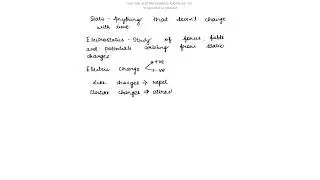 Static - Anything that doesn't change
with time
Electrostatics - Study of forces, fields
and potentials arising from static
charges
Electric Charge
+ve
-ve
Like charges → repel
Unlike charges → attract